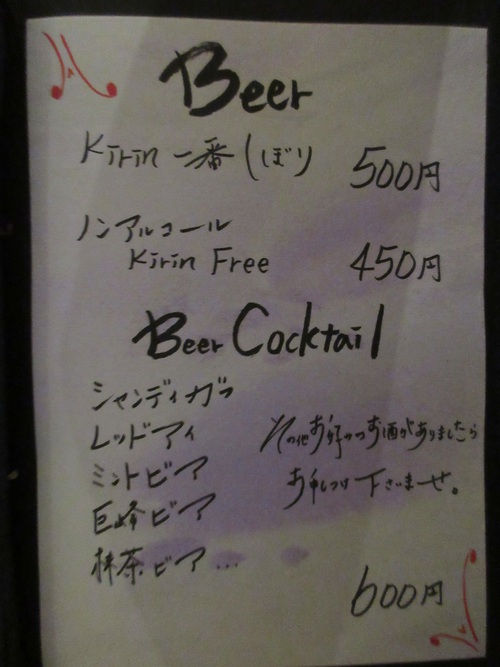 Beer
Kirin 一番しぼり 500円
ノンアルコール
Kirin Free 450円
Beer Cocktail
シャンディガフ
レッドアイ
ミントビア
巨峰ビア
抹茶ビア...
その他お好みのお酒がありましたら
お申しつけ下さいませ。
600円